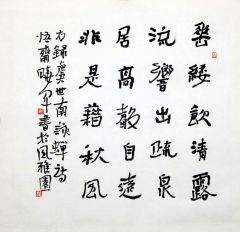 垂緌飲清露
流響出疏桐
居高聲自遠
非是藉秋風
右錄虞世南詠蟬詩
悟齋曉軍書於風雅園